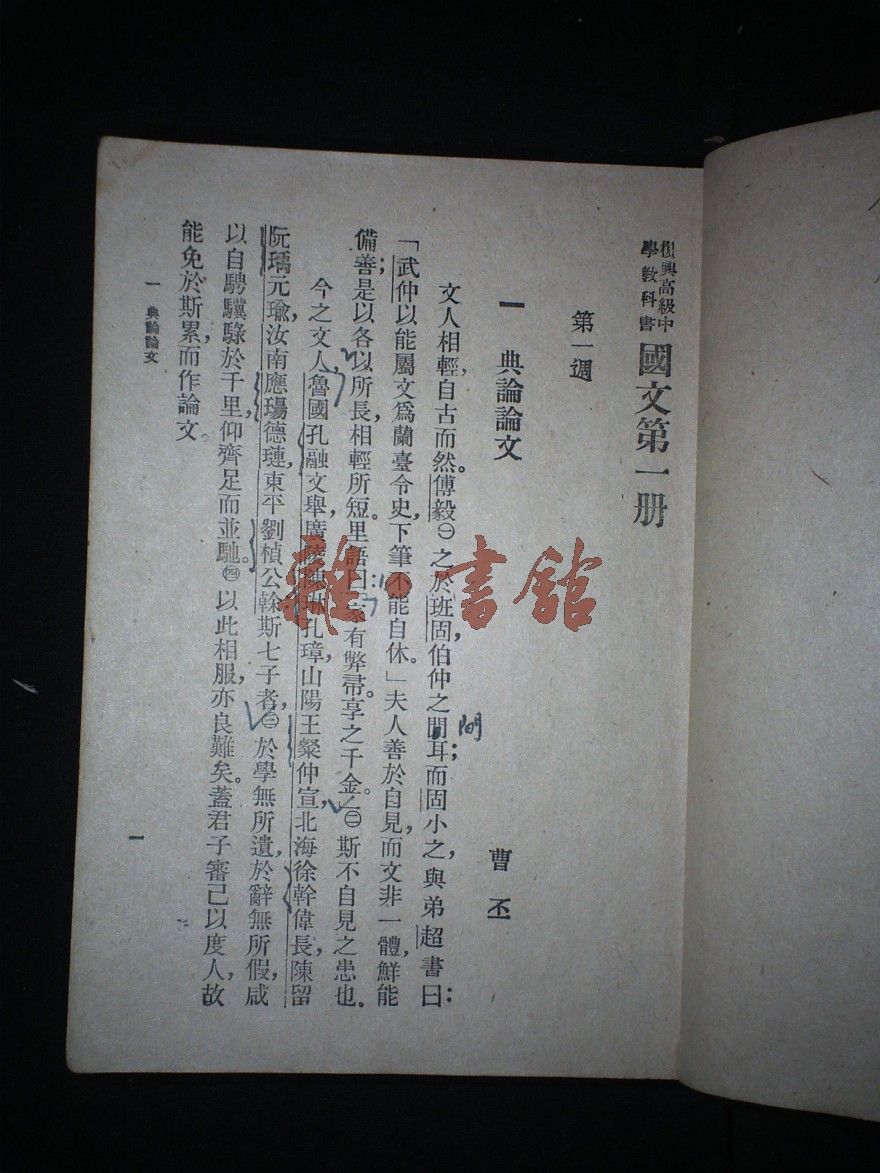 復興高級中
學教科書
國文第一册
第一週
一 典論論文
曹丕
文人相輕，自古而然。傅毅㊀之於班固，伯仲之間耳；而固小之，與弟超書曰：
間
「武仲以能屬文爲蘭臺令史，下筆不能自休。」夫人善於自見，而文非一體，鮮能
備善；是以各以所長，相輕所短。里語曰：「家有弊帚，享之千金。」㊁斯不自見之患也。
今之文人，魯國孔融文舉，廣陵陳琳孔璋，山陽王粲仲宣，北海徐幹偉長，陳留
阮瑀元瑜，汝南應瑒德璉，東平劉楨公幹，斯七子者，㊂於學無所遺，於辭無所假，咸
以自騁驥騄於千里，仰齊足而並馳。㊃以此相服，亦良難矣。蓋君子審己以度人，故
能免於斯累，而作論文。
一 典論論文
一
雜·書館